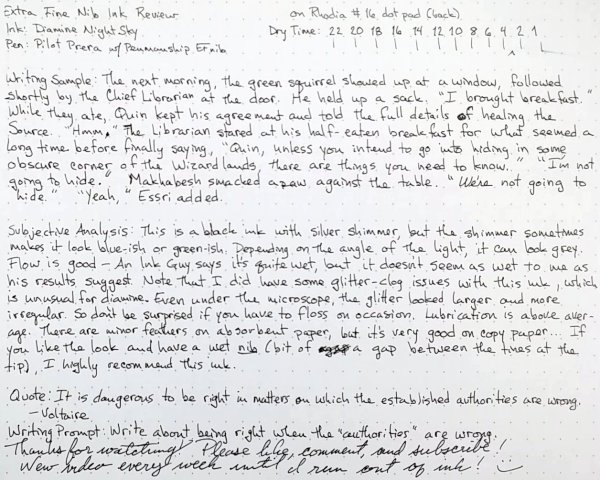 Extra Fine Nib Ink Review on Rhodia #16 dot pad (back)
Ink: Diamine Night Sky Dry Time: 22 20 18 16 14 12 10 8 6 4 2 1
Pen: Pilot Prera w/ Penmanship EF nib
Writing Sample: The next morning, the green squirrel showed up at a window, followed
shortly by the Chief Librarian at the door. He held up a sack. "I brought breakfast."
While they ate, Quin kept his agreement and told the full details of healing the
Source. "Hmm." The Librarian stared at his half-eaten breakfast for what seemed a
long time before finally saying, "Quin, unless you intend to go into hiding in some
obscure corner of the Wizardlands, there are things you need to know." "I'm not
going to hide." Makhabesh smacked a paw against the table. "We're not going to
hide." "Yeah," Essri added.
Subjective Analysis: This is a black ink with silver shimmer, but the shimmer sometimes
makes it look blue-ish or green-ish. Depending on the angle of the light, it can look grey.
Flow is good - An Ink Guy says it's quite wet, but it doesn't seem as wet to me as
his results suggest. Note that I did have some glitter-clog issues with this ink, which
is unusual for diamine. Even under the microscope, the glitter looked larger and more
irregular. So don't be surprised if you have to floss on occasion. Lubrication is above aver-
age. There are minor feathers on absorbent paper, but it's very good on copy paper... If
you like the look and have a wet nib (bit of a gap between the tines at the
tip), I highly recommend this ink.
Quote: It is dangerous to be right in matters on which the established authorities are wrong.
-Voltaire
Writing Prompt: Write about being right when the "authorities" are wrong.
Thanks for watching! Please like, comment, and subscribe!
New video every week until I run out of ink!